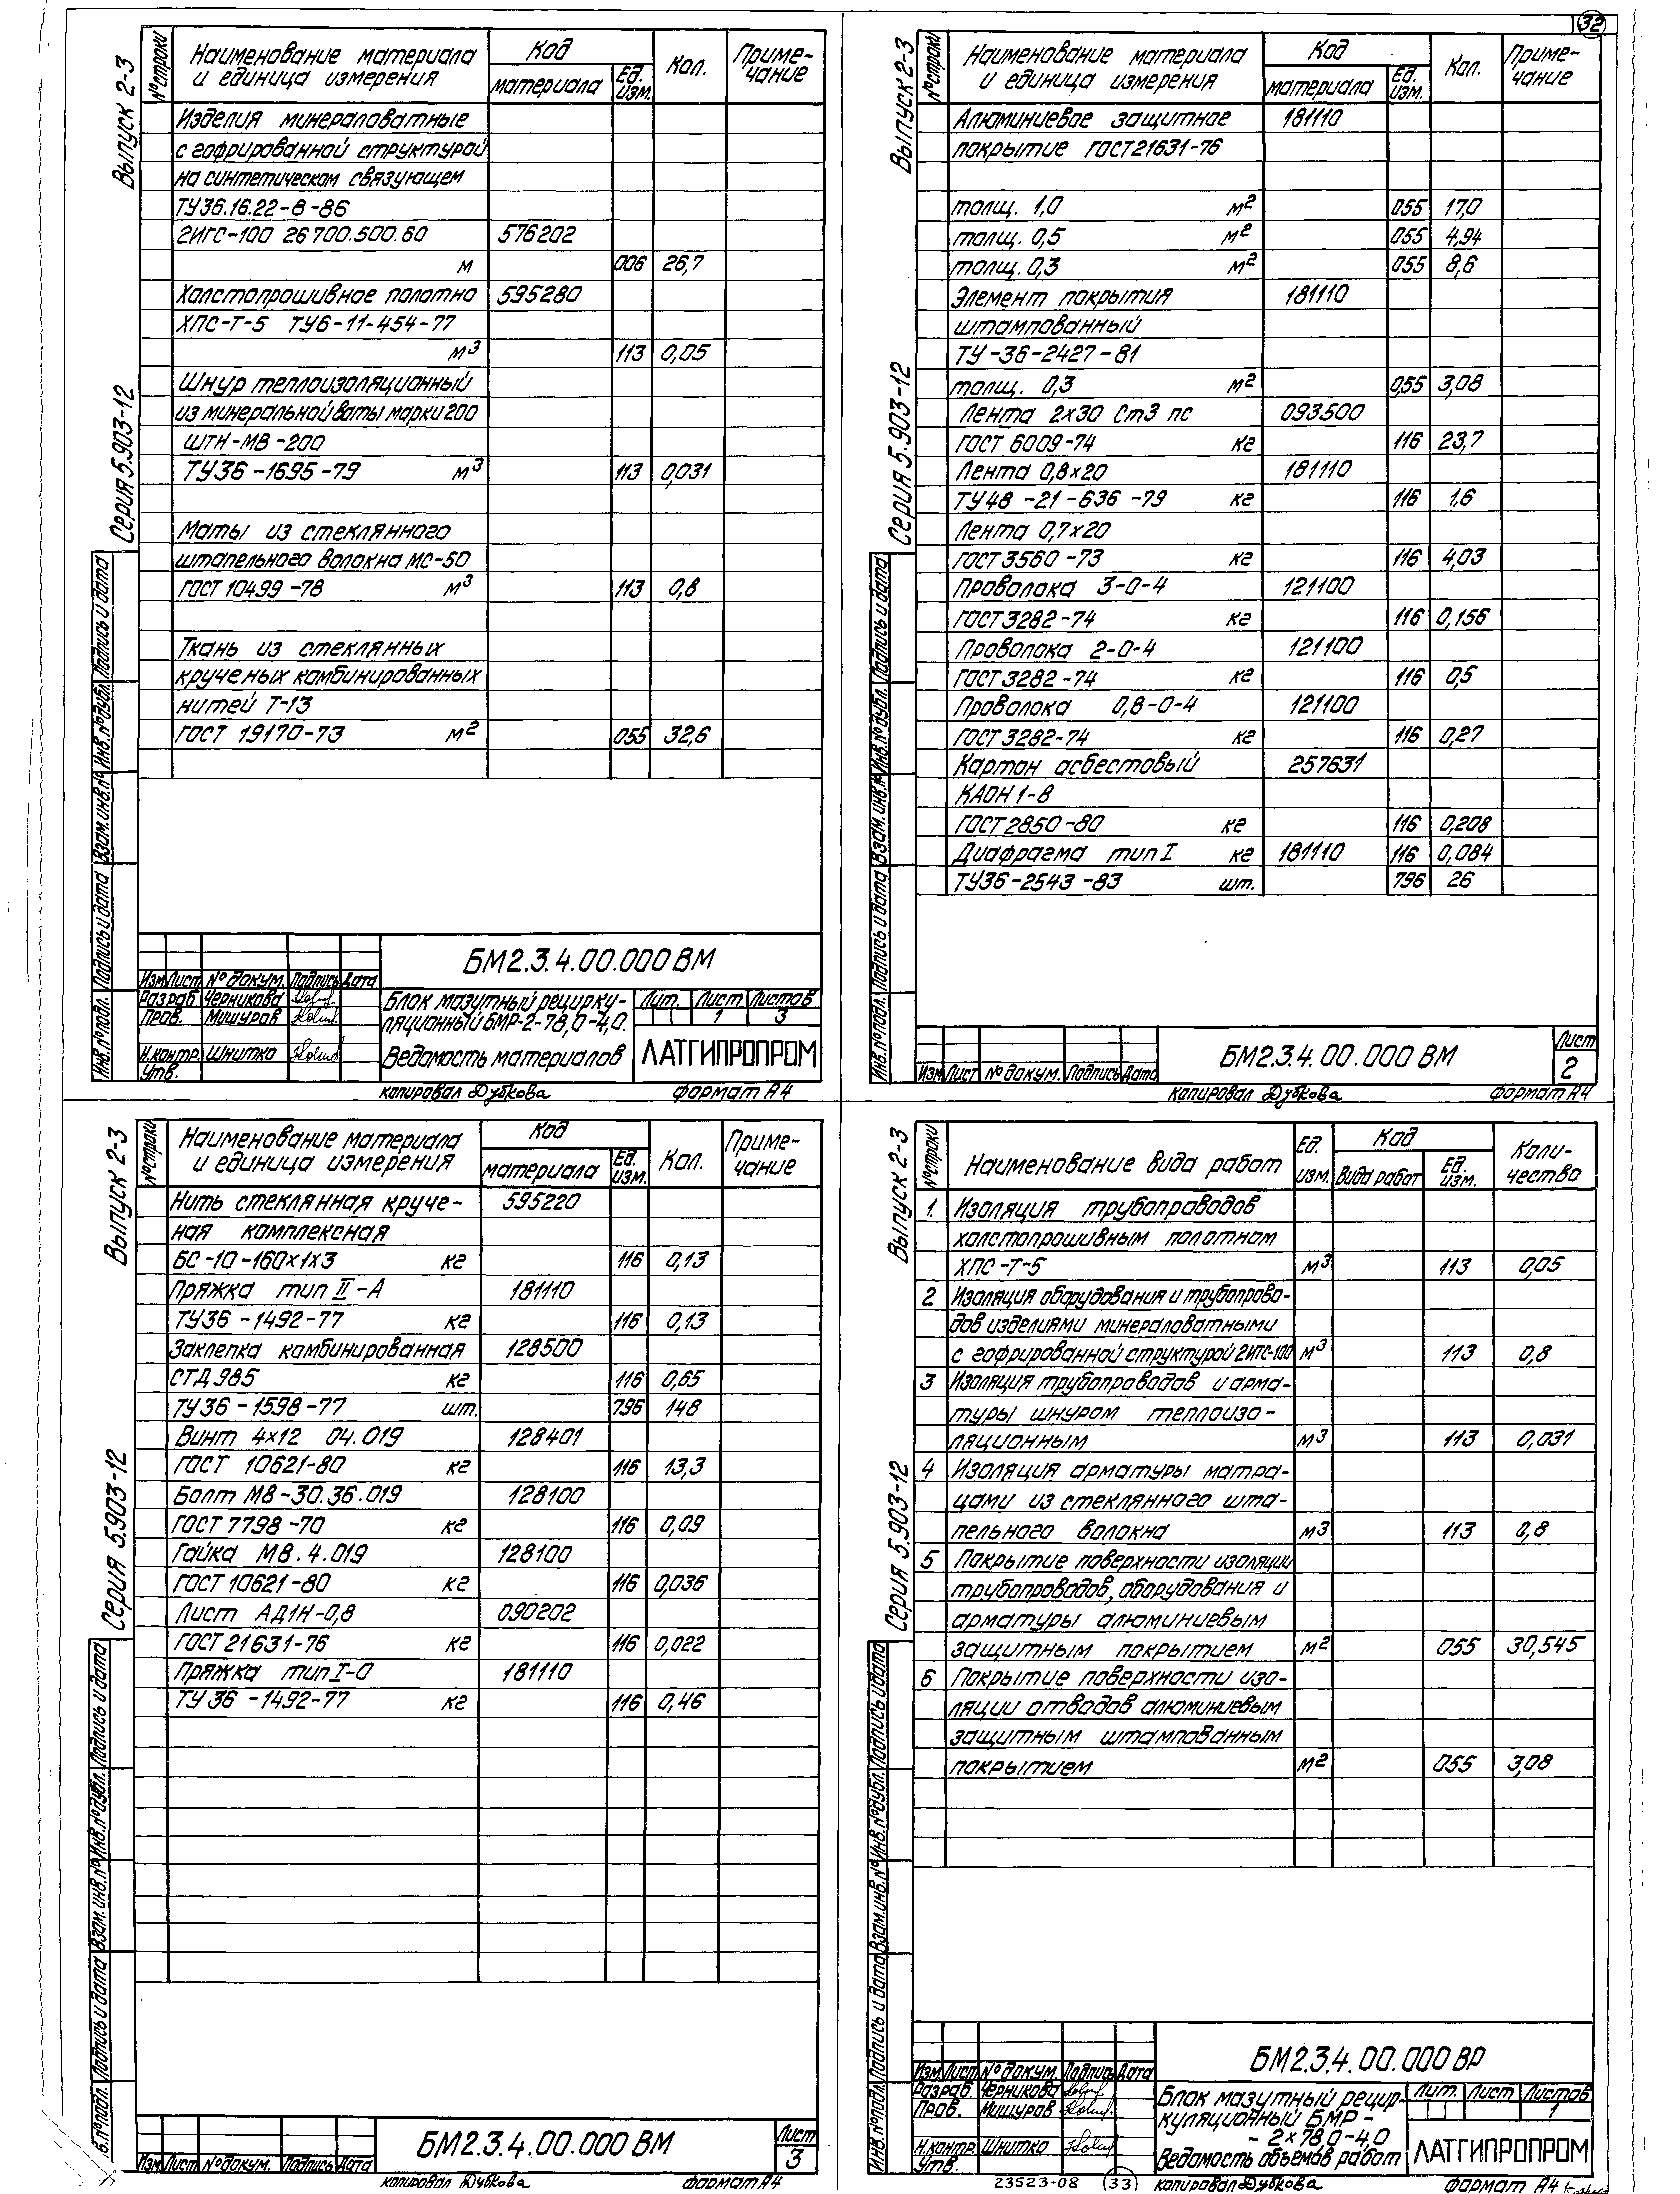 32
Выпуск 2-3
Серия 5.903-12
№ строки
Наименование материала и единица измерения
Код
материала
Ед. изм.
Кол.
Приме-
чание
Изделия минераловатные
с гофрированной структурой
на синтетическом связующем
ТУ36.16.22-8-86
2ИГС-100 26700.500.60 576202
м 006 26,7
Холстопрошивное полотно 595280
ХПС-Т-5 ТУ6-11-454-77
м3 113 0,05
Шнур теплоизоляционный
из минеральной ваты марки 200
ШТН-МВ-200
ТУ36-1695-79 м3 113 0,031
Маты из стеклянного
штапельного волокна МС-50
ГОСТ 10499-78 м3 113 0,8
Ткань из стеклянных
крученых комбинированных
нитей Т-13
ГОСТ 19170-73 м2 055 32,6
БМ2.3.4.00.000 ВМ
Изм Лист № докум. Подпись Дата
Разраб. Черникова
Пров. Мишуров
Н.контр. Шнитко
Утв.
Блок мазутный рецирку-
ляционный БМР-2-78,0-4,0.
Ведомость материалов
Лит. Лист Листов
1 3
ЛАТГИПРОПРОМ
Инв.№ подл. Подпись и дата Взам.инв.№ Инв.№ дубл. Подпись и дата
копировал Дубкова формат А4
Выпуск 2-3
Серия 5.903-12
№ строки
Наименование материала и единица измерения
Код
материала
Ед. изм.
Кол.
Приме-
чание
Алюминиевое защитное 181110
покрытие ГОСТ21631-76
толщ. 1,0 м2 055 17,0
толщ. 0,5 м2 055 4,94
толщ. 0,3 м2 055 8,6
Элемент покрытия 181110
штампованный
ТУ-36-2427-81
толщ. 0,3 м2 055 3,08
Лента 2х30 Ст3 пс 093500
ГОСТ 6009-74 кг 116 23,7
Лента 0,8х20 181110
ТУ48-21-636-79 кг 116 1,6
Лента 0,7х20
ГОСТ3560-73 кг 116 4,03
Проволока 3-0-4 121100
ГОСТ3282-74 кг 116 0,156
Проволока 2-0-4 121100
ГОСТ3282-74 кг 116 0,5
Проволока 0,8-0-4 121100
ГОСТ3282-74 кг 116 0,27
Картон асбестовый 257631
КАОН 1-8
ГОСТ2850-80 кг 116 0,208
Диафрагма тип I кг 181110 116 0,084
ТУ36-2543-83 шт. 796 26
БМ2.3.4.00.000 ВМ
Лист
2
Изм. Лист № докум. Подпись Дата
Инв.№ подл. Подпись и дата Взам.инв.№ Инв.№ дубл. Подпись и дата
копировал Дубкова формат А4
Выпуск 2-3
Серия 5.903-12
№ строки
Наименование материала и единица измерения
Код
материала
Ед. изм.
Кол.
Приме-
чание
Нить стеклянная круче- 595220
ная комплексная
БС-10-160х1х3 кг 116 0,13
Пряжка тип II-А 181110
ТУ36-1492-77 кг 116 0,13
Заклепка комбинированная 128500
СТД985 кг 116 0,65
ТУ36-1598-77 шт. 796 148
Винт 4х12 04.019 128401
ГОСТ 10621-80 кг 116 13,3
Болт М8-30.36.019 128100
ГОСТ 7798-70 кг 116 0,09
Гайка М8.4.019 128100
ГОСТ 10621-80 кг 116 0,036
Лист АД1Н-0,8 090202
ГОСТ 21631-76 кг 116 0,022
Пряжка тип I-0 181110
ТУ 36-1492-77 кг 116 0,46
БМ2.3.4.00.000 ВМ
Лист
3
Изм. Лист № докум. Подпись Дата
в.№ подл. Подпись и дата Взам.инв.№ Инв.№ дубл. Подпись и дата
копировал Дубкова формат А4
Выпуск 2-3
Серия 5.903-12
№ строки
Наименование вида работ
Ед. изм.
Код
Вида работ
Ед. изм.
Коли-
чество
1. Изоляция трубопроводов
холстопрошивным полотном
ХПС-Т-5 м3 113 0,05
2 Изоляция оборудования и трубопрово-
дов изделиями минераловатными
с гофрированной структурой 2ИГС-100 м3 113 0,8
3 Изоляция трубопроводов и арма-
туры шнуром теплоизо-
ляционным м3 113 0,031
4 Изоляция арматуры матра-
цами из стеклянного шта-
пельного волокна м3 113 0,8
5 Покрытие поверхности изоляции
трубопроводов, оборудования и
арматуры алюминиевым
защитным покрытием м2 055 30,545
6 Покрытие поверхности изо-
ляции отводов алюминиевым
защитным штампованным
покрытием м2 055 3,08
БМ2.3.4.00.000 ВР
Изм. Лист № докум. Подпись Дата
Разраб. Черникова
Пров. Мишуров
Н.контр. Шнитко
Утв.
Блок мазутный рецир-
куляционный БМР-
- 2×78,0-4,0
Ведомость объемов работ
Лит. Лист Листов
1
ЛАТГИПРОПРОМ
Инв.№ подл. Подпись и дата Взам.инв.№ Инв.№ дубл. Подпись и дата
23523-08 33 копировал Дубкова формат А4